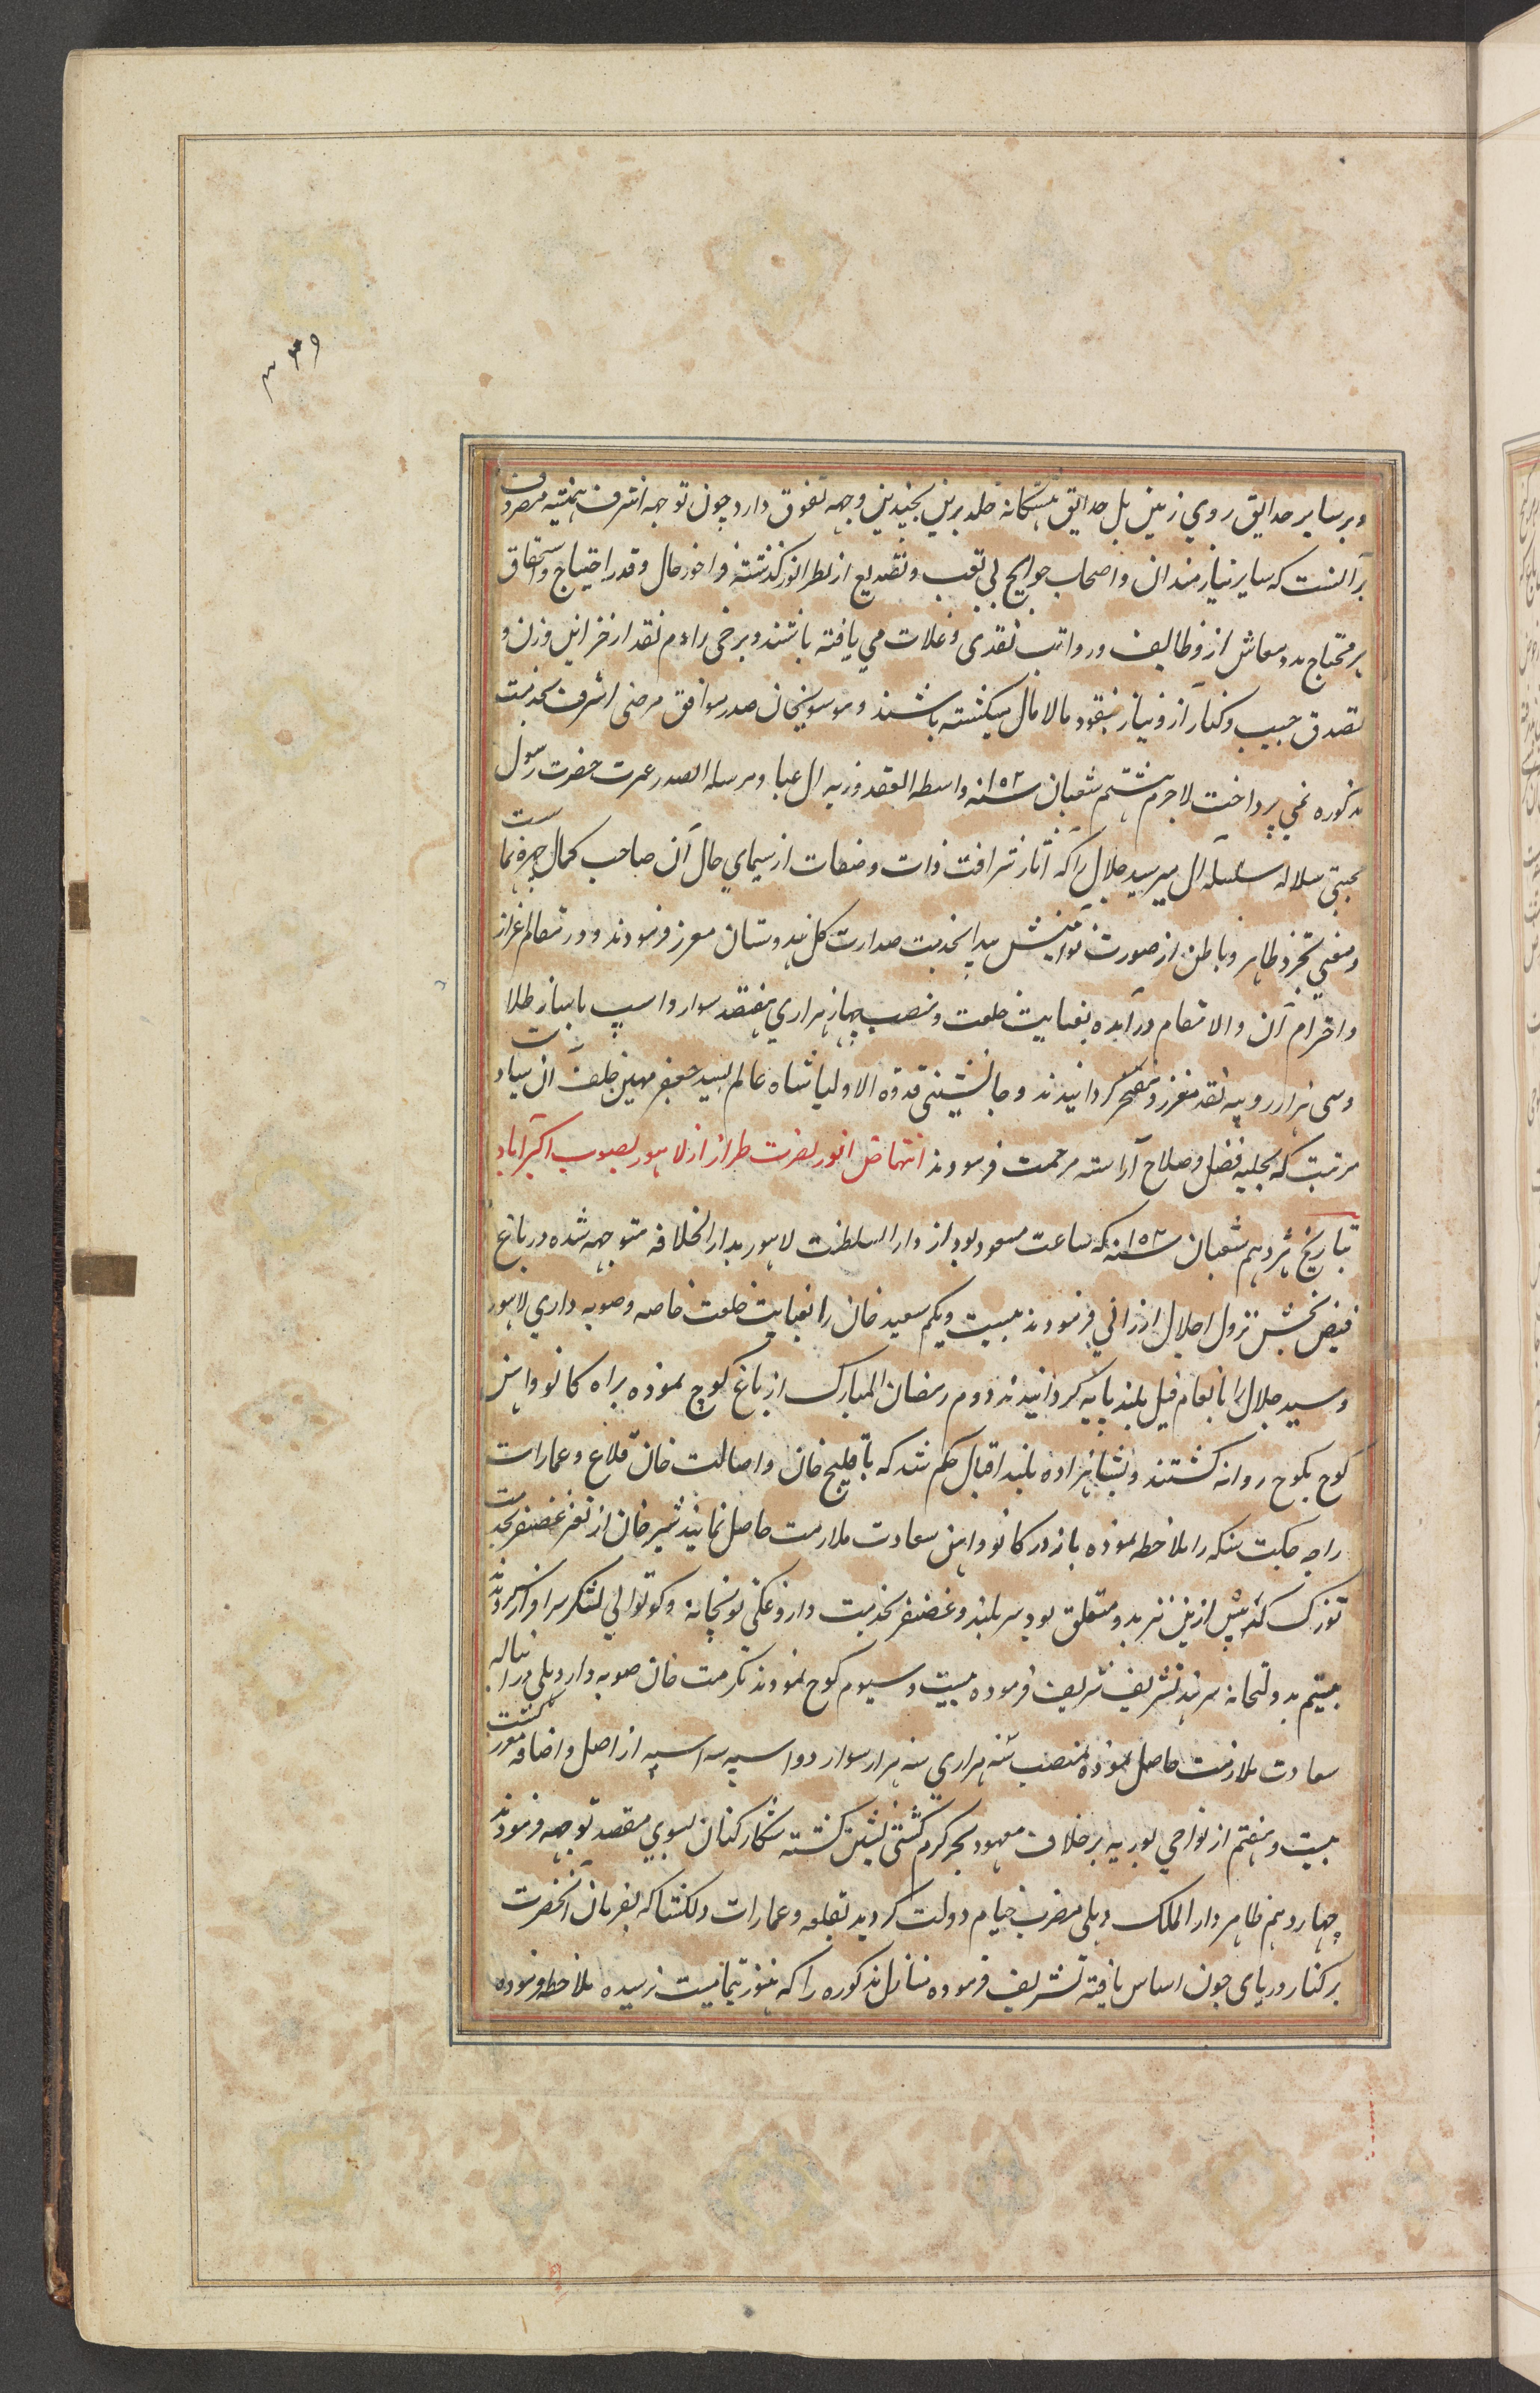 و بر سایر حدایق روی زمین بل حدایق هشتکانه خلد برین بچندین وجهه تفوق دارد چون توجهه اشرف همیشه مصروف
برآنست که سایر نیازمندان و اصحاب حوایج بی تعب و تصدیع از نظر انور کذشته فراخور حال و قدر احتیاج و استحقاق
هر محتاج مدد معاش از وظایف و رواتب نقدی و غلات می یافته باشند و برخی را هم نقد از خزاین وزن و
تصدق جیب و کنار آز و نیاز بنقود مالامال میکشته باشند و موسویخان صدر موافق مرضی اشرف بخدمت
مذکوره نمی پرداخت لاجرم هشتم شعبان سنه ۱۰۵۲ واسطه العقد ذریه ال عبا و مرسله الصدر عترت حضرت رسول
مجتبی سلاله سلسله آل میر سید جلال را که آثار شرافت ذات و صفات از سیمای حال آن صاحب کمال چهره نماست
و معنی تجرد ظاهر و باطن از صورت نوآفینش پیدا بخدمت صدارت کل هندوستان معزز فرمودند و در مقام اعزاز
و احترام آن والا مقام درآمده بعنایت خلعت و منصب چهار هزاری هفتصد سوار و اسپ با ساز طلا
و سی هزار روپیه نقد معزز و مفتخر کردانیدند و جانشینی قدوه الاولیا شاه عالم بسید جعفر مهین خلف آن سیادت
مرتبت که بحلیه فضل و صلاح آراسته مرحمت فرمودند انتهاض انور نصرت طراز از لاهور بصوب اکبرآباد
بتاریخ هژدهم شعبان سنه ۱۰۵۲ که ساعت مسعود بود از دارالسلطنت لاهور بدارالخلافه متوجهه شده در باغ
فیض بخش نزول اجلال ارزانی فرمودند بیست و یکم سعید خان را بعنایت خلعت خاصه و صوبه داری لاهور
و سید جلال را بانعام فیل بلند پایه کردانیدند دوم رمضان المبارک از باغ کوچ نموده براه کانوواهن
کوچ بکوچ روانه کشتند و بشاهزاده بلند اقبال حکم شد که با قلیج خان و اصالت خان قلاع و عمارات
راجه جکت سنکه را ملاحظه نموده باز در کانوواهن سعادت ملازمت حاصل نمایند شیر خان از تغیر غضنفر بخدمت
توزک که پیش ازین نیز بدو متعلق بود سربلند و غضنفر بخدمت داروغکی توپخانه و کوتوالی لشکر سرافراز کردیدند
بیستم بدولتخانه سرهند تشریف شریف فرموده بیست و سیوم کوچ نمودند مکرمت خان صوبه دار دهلی در انباله
سعادت ملازمت حاصل نموده بمنصب سه هزاری سه هزار سوار دو اسپه سه اسپه از اصل و اضافه معزز کشت
بیست و هفتم از نواحی بوریه برخلاف معهود بحر کرم کشتی نشین کشته شکار کنان بسوی مقصد توجهه فرمودند
چهاردهم ظاهر دارالملک دهلی مضرب خیام دولت کردید بقلعه و عمارات دلکشا که بفرمان آنحضرت
بر کنار دریای جون اساس یافته تشریف فرموده منازل مذکوره را که هنوز بتمامیت نرسیده ملاحظه فرموده